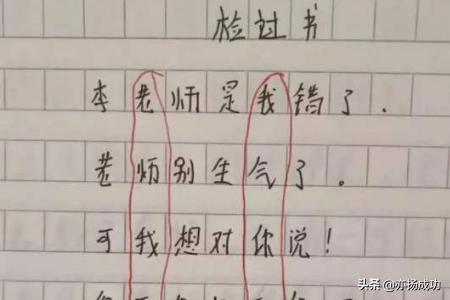 检过书
李老师是我错了.
老师别生气了。
可我想对你说!
头条 @亦扬成功